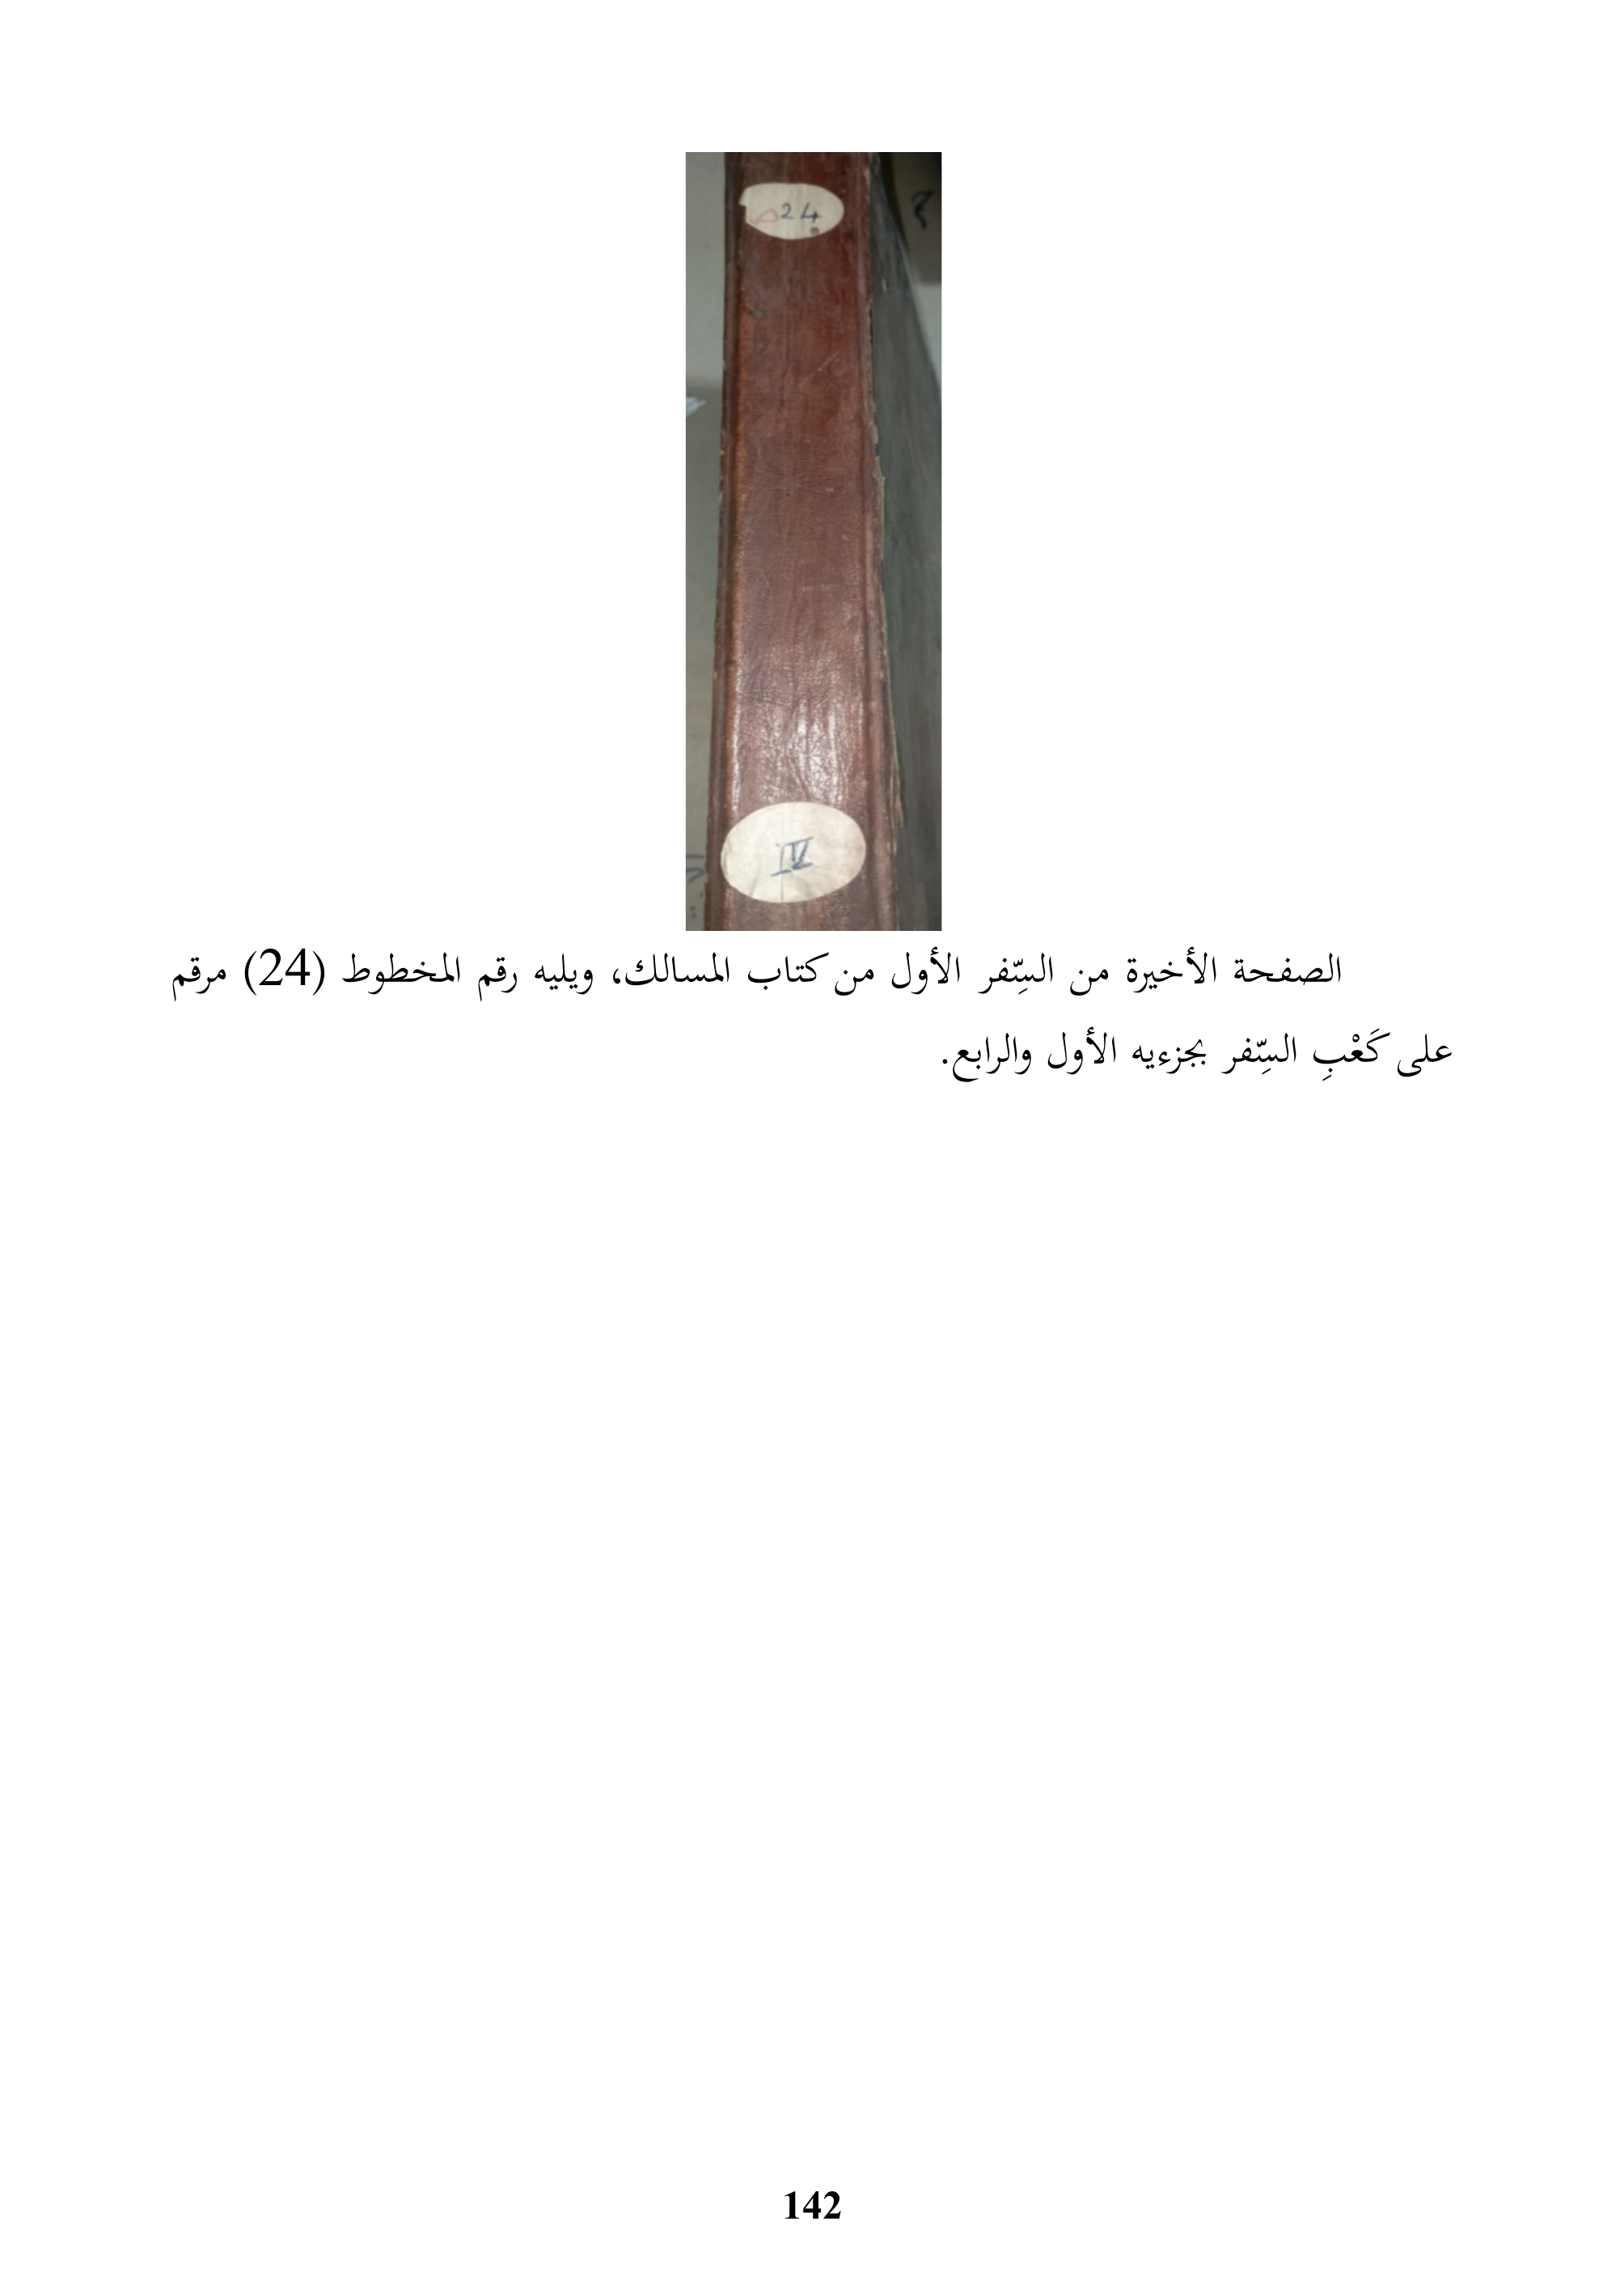 24
IV
الصفحة الأخيرة من السِّفر الأول من كتاب المسالك، ويليه رقم المخطوط (24) مرقم
على كَعْبِ السِّفر بجزءيه الأول والرابع.
142